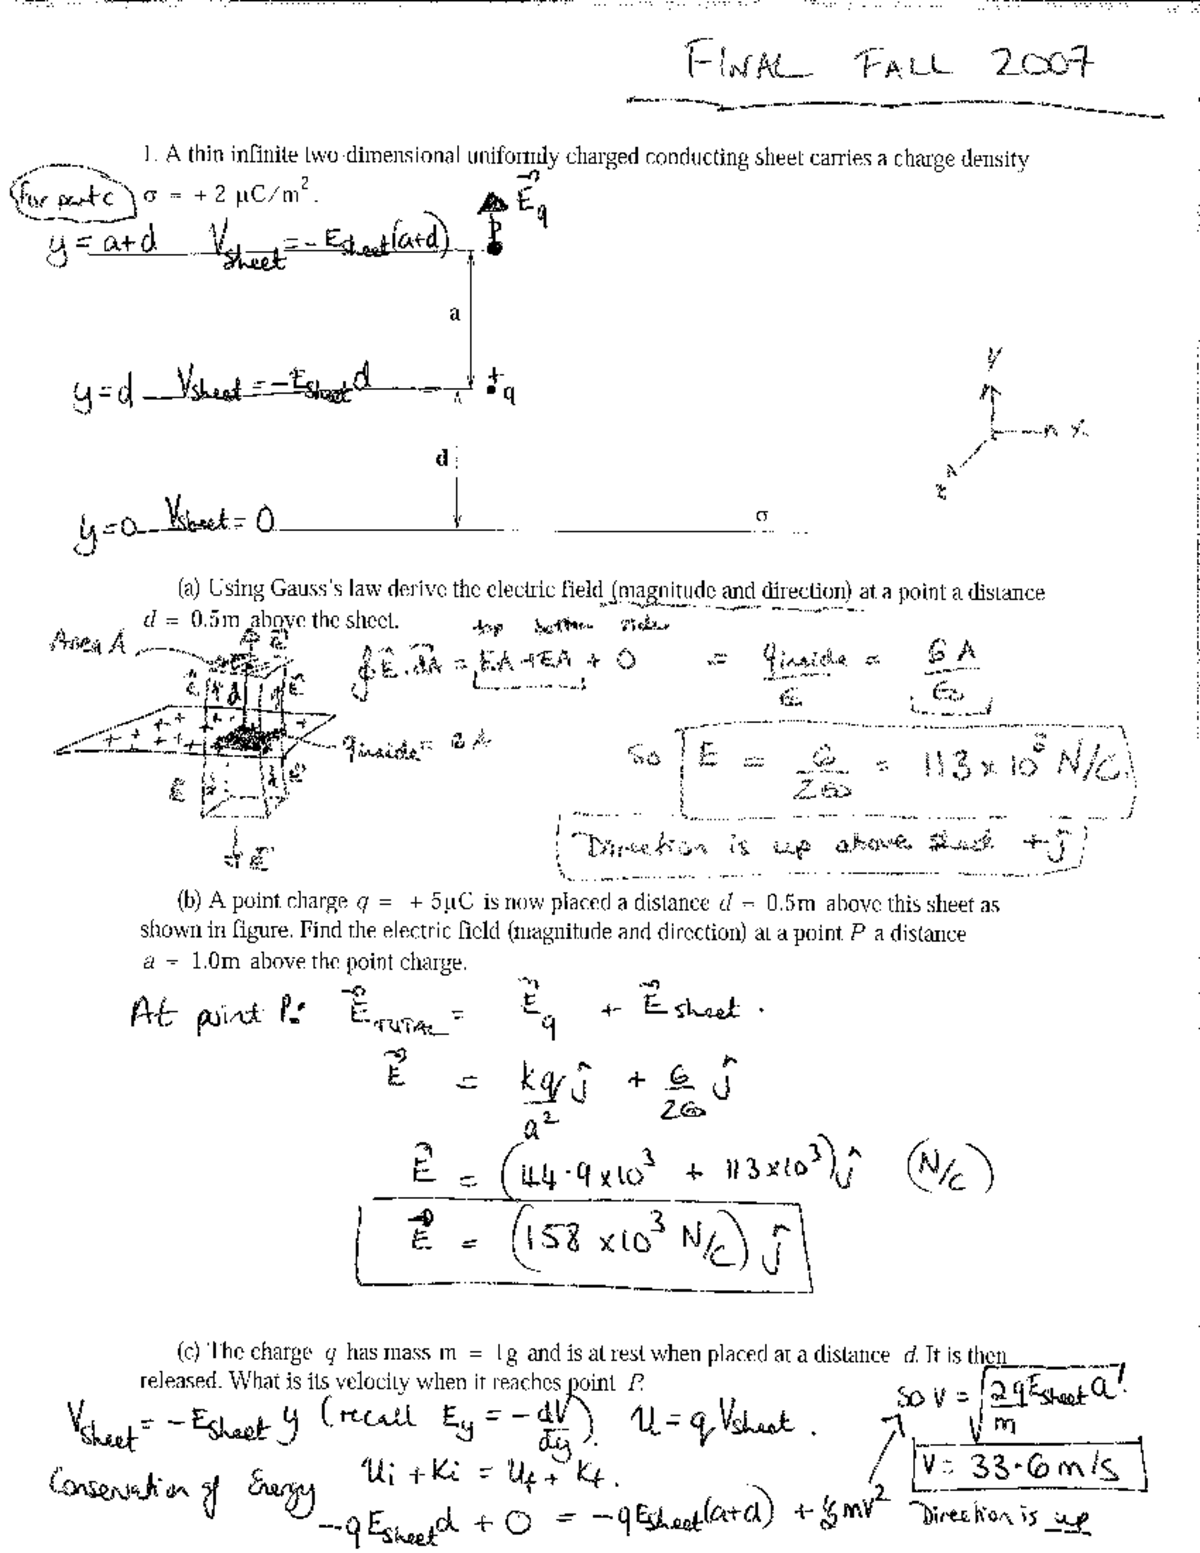 FINAL FALL 2007
1. A thin infinite two-dimensional uniformly charged conducting sheet carries a charge density
For part c
σ = + 2 μC/m².
E⃗q
P
y = a+d Vsheet = -Esheet(a+d)
a
y=d Vsheet = -Esheet d
+q
Y
X
Z
d
y=0 Vsheet = 0
σ
(a) Using Gauss's law derive the electric field (magnitude and direction) at a point a distance
d = 0.5m above the sheet.
top bottom sides
Area A
∮E⃗.dA⃗ = EA + EA + 0 = qinside/ε = σA/ε₀
qinside = σA
so E = σ/2ε₀ = 113 x 10³ N/C.
Direction is up above sheet +ĵ
(b) A point charge q = + 5μC is now placed a distance d = 0.5m above this sheet as
shown in figure. Find the electric field (magnitude and direction) at a point P a distance
a = 1.0m above the point charge.
At point P: E⃗TOTAL = E⃗q + E⃗sheet.
E⃗ = kq/a² ĵ + σ/2ε₀ ĵ
E⃗ = (44.9x10³ + 113x10³)ĵ (N/C)
E⃗ = (158 x10³ N/C) ĵ
(c) The charge q has mass m = 1g and is at rest when placed at a distance d. It is then
released. What is its velocity when it reaches point P.
so v = √(2qEsheet a/m)
Vsheet = -Esheet y (recall Ey = -dV/dy). U = qVsheet.
v = 33.6 m/s
Conservation of Energy Ui + Ki = Uf + Kf.
-qEsheet d + 0 = -qEsheet(a+d) + ½mv²
Direction is up